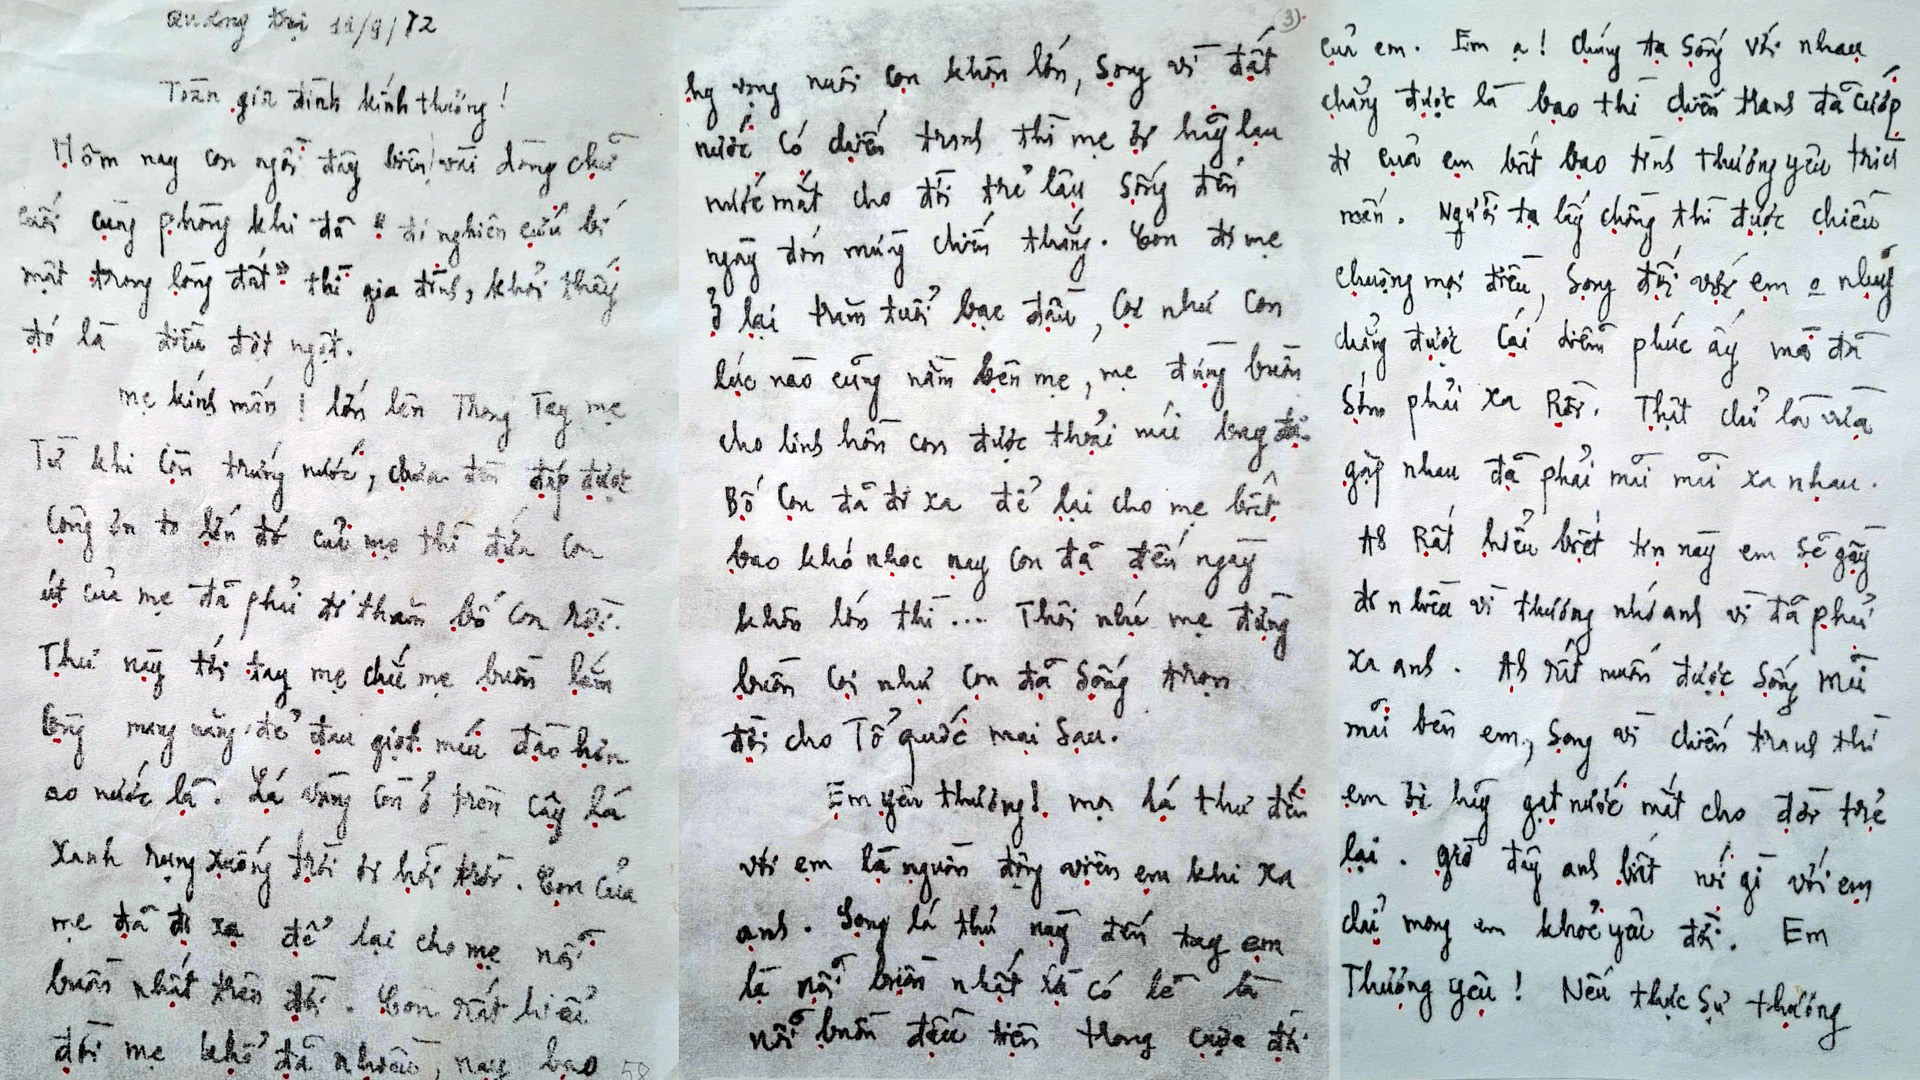 Quảng trị 11/9/72
Toàn gia đình kính thương!
Hôm nay con ngồi đây biên vài dòng chữ
cuối cùng phòng khi đã "đi nghiên cứu bí
mật trong lòng đất" thì gia đình, khỏi thấy
đó là điều đột ngột.
mẹ kính mến! lớn lên Trong Tay mẹ
Từ khi còn trứng nước, chưa đền đáp được
công ơn to lớn đó của mẹ thì đứa con
út của mẹ đã phải đi thăm bố con rồi.
Thư này tới tay mẹ chắc mẹ buồn lắm
lòng mang nặng đẻ đau giọt máu đào hơn
ao nước lã. Lá vàng còn ở trên cây lá
xanh rụng xuống trời ơi hỡi trời. Con của
mẹ đã đi xa để lại cho mẹ nỗi
buồn nhất trên đời. Con rất hiểu
đời mẹ khổ đã nhiều, nay bao
58
(3).
hy vọng nuôi con khôn lớn, Song vì đất
nước có chiến tranh thì mẹ ơi hãy lau
nước mắt cho đời trẻ lâu sống đến
ngày đón mừng chiến thắng. Con đi mẹ
ở lại trăm tuổi bạc đầu, Coi như Con
lúc nào cũng nằm bên mẹ, mẹ đừng buồn
cho linh hồn con được thoải mái bay đi.
Bố Con đã đi xa để lại cho mẹ biết
bao khó nhọc nay con đã đến ngày
khôn lớn thì... Thôi nhé mẹ đừng
buồn coi như con đã sống trọn
đời cho Tổ quốc mai Sau.
Em yêu thương! mọi lá thư đến
với em là nguồn động viên em khi xa
anh. Song lá thư này đến tay em
là nỗi buồn nhất và có lẽ là
nỗi buồn đầu tiên trong cuộc đời
của em. Em ạ! chúng ta sống với nhau
chẳng được là bao thì chiến tranh đã cướp
đi của em biết bao tình thương yêu trìu
mến. Người ta lấy chồng thì được chiều
chuộng mọi điều, Song đối với em
chẳng được cái diễm phúc ấy mà đã
Sớm phải xa Rồi. Thật chỉ là vừa
gặp nhau đã phải mãi mãi xa nhau.
Rất hiểu biết tin này em sẽ gầy
đi nhiều vì thương nhớ anh vì đã phải
xa anh. rất muốn được sống mãi
mãi bên em, Song vì chiến tranh thì
em ơi hãy gạt nước mắt cho đời trẻ
lại. giờ đây anh biết nói gì với em
chỉ mong em khoẻ yêu đời. Em
Thương yêu! Nếu thực sự thương